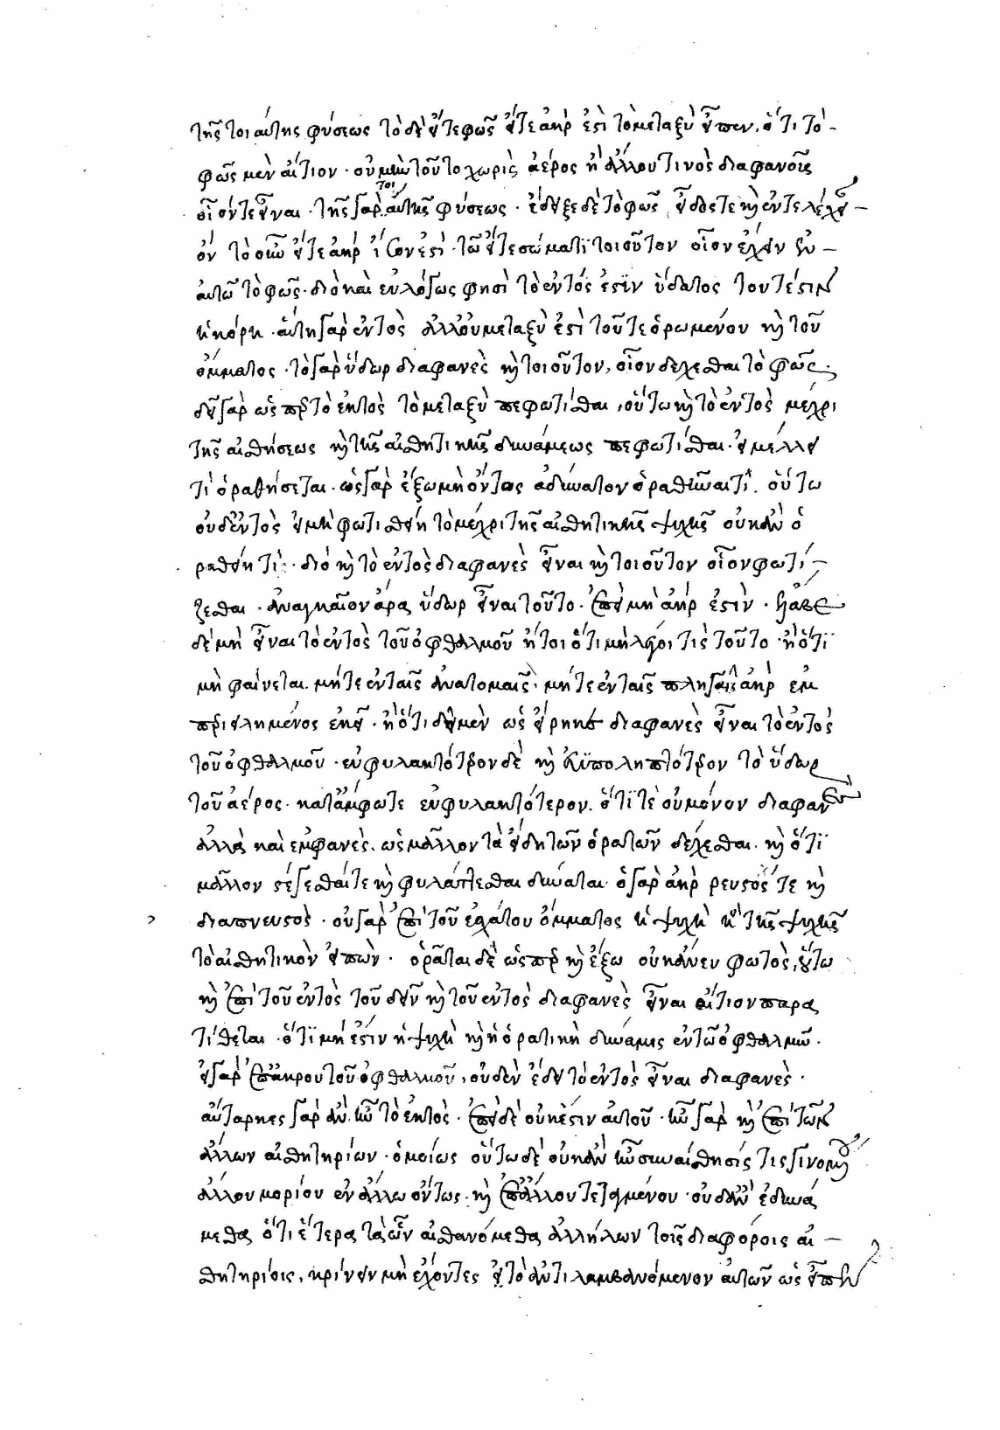 τῆς τοιαύτης φύσεως τὸ δὲ εἴτε φῶς εἴτε ἀήρ ἐστὶ τὸ μεταξὺ εἶπεν. ὅτι τὸ
φῶς μὲν αἴτιον · οὐ μὴν τοῦτο χωρὶς ἀέρος ἢ ἄλλου τινὸς διαφανοῦς
οἷόν τε εἶναι · τῆς γὰρ τοιαύτης φύσεως · ἐδείξε δὲ τὸ φῶς εἶδός τε καὶ ἐντελέχει
ον τὸ οὖν εἴτε ἀήρ ἴσον ἐστὶ · τῶ εἴτε σώματι τοιοῦτον οἷον ἔχειν ἐν
αυτῶ τὸ φῶς · διὸ καὶ ευλόγως φησὶ τὸ εντός ἐστιν ὕδατος τουτέστιν
ἡ κόρη · αὕτη γὰρ εντὸς ἀλλ' οὐ μεταξὺ ἐστὶ τοῦ τε ὁρωμένου καὶ τοῦ
ὄμματος · τὸ γὰρ ὕδωρ διαφανὲς καὶ τοιοῦτον, οἷον δέχεσθαι τὸ φῶς ·
δεῖ γὰρ ὡς περ τὸ ἐκτὸς τὸ μεταξὺ πεφωτίσθαι, οὕτω καὶ τὸ ἐντὸς μέχρι
τῆς αισθήσεως καὶ τῆς αἰσθητικῆς δυνάμεως πεφωτίσθαι · εἰ μέλλει
τὶ ὁραθήσεται · ὡς γὰρ ἔξω μὴ ὄντος ἀδύνατον ὁραθῆναι τὶ · οὕτω
ουδ' ἐντὸς εἰ μὴ φωτισθείη τὸ μέχρι τῆς αἰσθητικῆς ψυχῆς οὐκ ἂν ὁ
ραθείη τὶ · διὸ καὶ τὸ εντὸς διαφανὲς εἶναι καὶ τοιοῦτον οἷον φωτί
ζεσθαι · ἀναγκαῖον ἄρα ὕδωρ εἶναι τοῦτο · ἐπεὶ μὴ ἀήρ ἐστὶν ·
δὲ μὴ εἶναι τὸ ἐντὸς τοῦ ὀφθαλμοῦ ἤτοι ὅτι μὴ λέγοι τὶς τοῦτο · ἢ ὅτι
μὴ φαίνεται μήτε ἐν ταῖς ἀνατομαῖς · μήτε ἐν ταῖς πληγαῖς ἀὴρ ἐμ
περιειλημένος ἐκεῖ · ἢ ὅτι δεῖ μὲν ὡς εἴρηκε διαφανὲς εἶναι τὸ ἐντὸς
τοῦ ὀφθαλμοῦ · εὐφυλακτότερον δὲ καὶ εὐϋποληπτότερον τὸ ὕδωρ
τοῦ ἀέρος · κατ' ἄμφω τε εὐφυλακτότερον. ὅτι τὲ οὐ μόνον διαφανὲς
ἀλλὰ καὶ ἐμφανὲς. ὡς μᾶλλον τὰ εἴδη τῶν ὁρατῶν δέχεσθαι · καὶ ὅτι
μᾶλλον στέγεσθαί τε καὶ φυλάττεσθαι δύναται · ὁ γὰρ ἀὴρ ῥευστός τε καὶ
διαπνευστὸς · οὐ γὰρ ἐπὶ τοῦ ἐσχάτου ὄμματος ἡ ψυχὴ ἢ τῆς ψυχῆς
τὸ αἰσθητικὸν εἰπὼν · ὁρᾶται δὲ ὡς περ καὶ ἔξω οὐκ ἄνευ φωτὸς, οὕτω
καὶ ἐπὶ τοῦ ἐντὸς τοῦ δεῖν καὶ τοῦ ἐντὸς διαφανὲς εἶναι αἴτιον παρα
τίθεται · ὅτι μή ἐστιν ἡ ψυχὴ καὶ ἡ ὁρατικὴ δύναμις ἐν τῶ ὀφθαλμῶ ·
εἰ γὰρ ἐπ' ἄκρου τοῦ ὀφθαλμοῦ, οὐδὲν ἔδει τὸ ἐντὸς εἶναι διαφανὲς ·
αὔταρκες γὰρ ἂν ἦν τὸ ἐκτὸς · ἐπεὶ δὲ οὐκ ἔστιν αὐτοῦ · ἦν γὰρ καὶ ἐπὶ τῶν
ἄλλων αἰσθητηρίων · ὁμοίως οὕτω δὲ οὐκ ἂν ἦν συναίσθησίς τις γινομένη
ἄλλου μορίου ἐν ἄλλω ὄντος · καὶ ἐπ' ἄλλου τεταγμένου · οὐδ' ἂν ἐδυνά
μεθα ὅτι ἕτερα τὰ ὧν αἰσθανόμεθα ἀλλήλων τοῖς διαφόροις αἰ
σθητηρίοις, κρίνειν μὴ ἔχοντες τὸ ἀντιλαμβανόμενον αὐτῶν ὡς εἶπεν